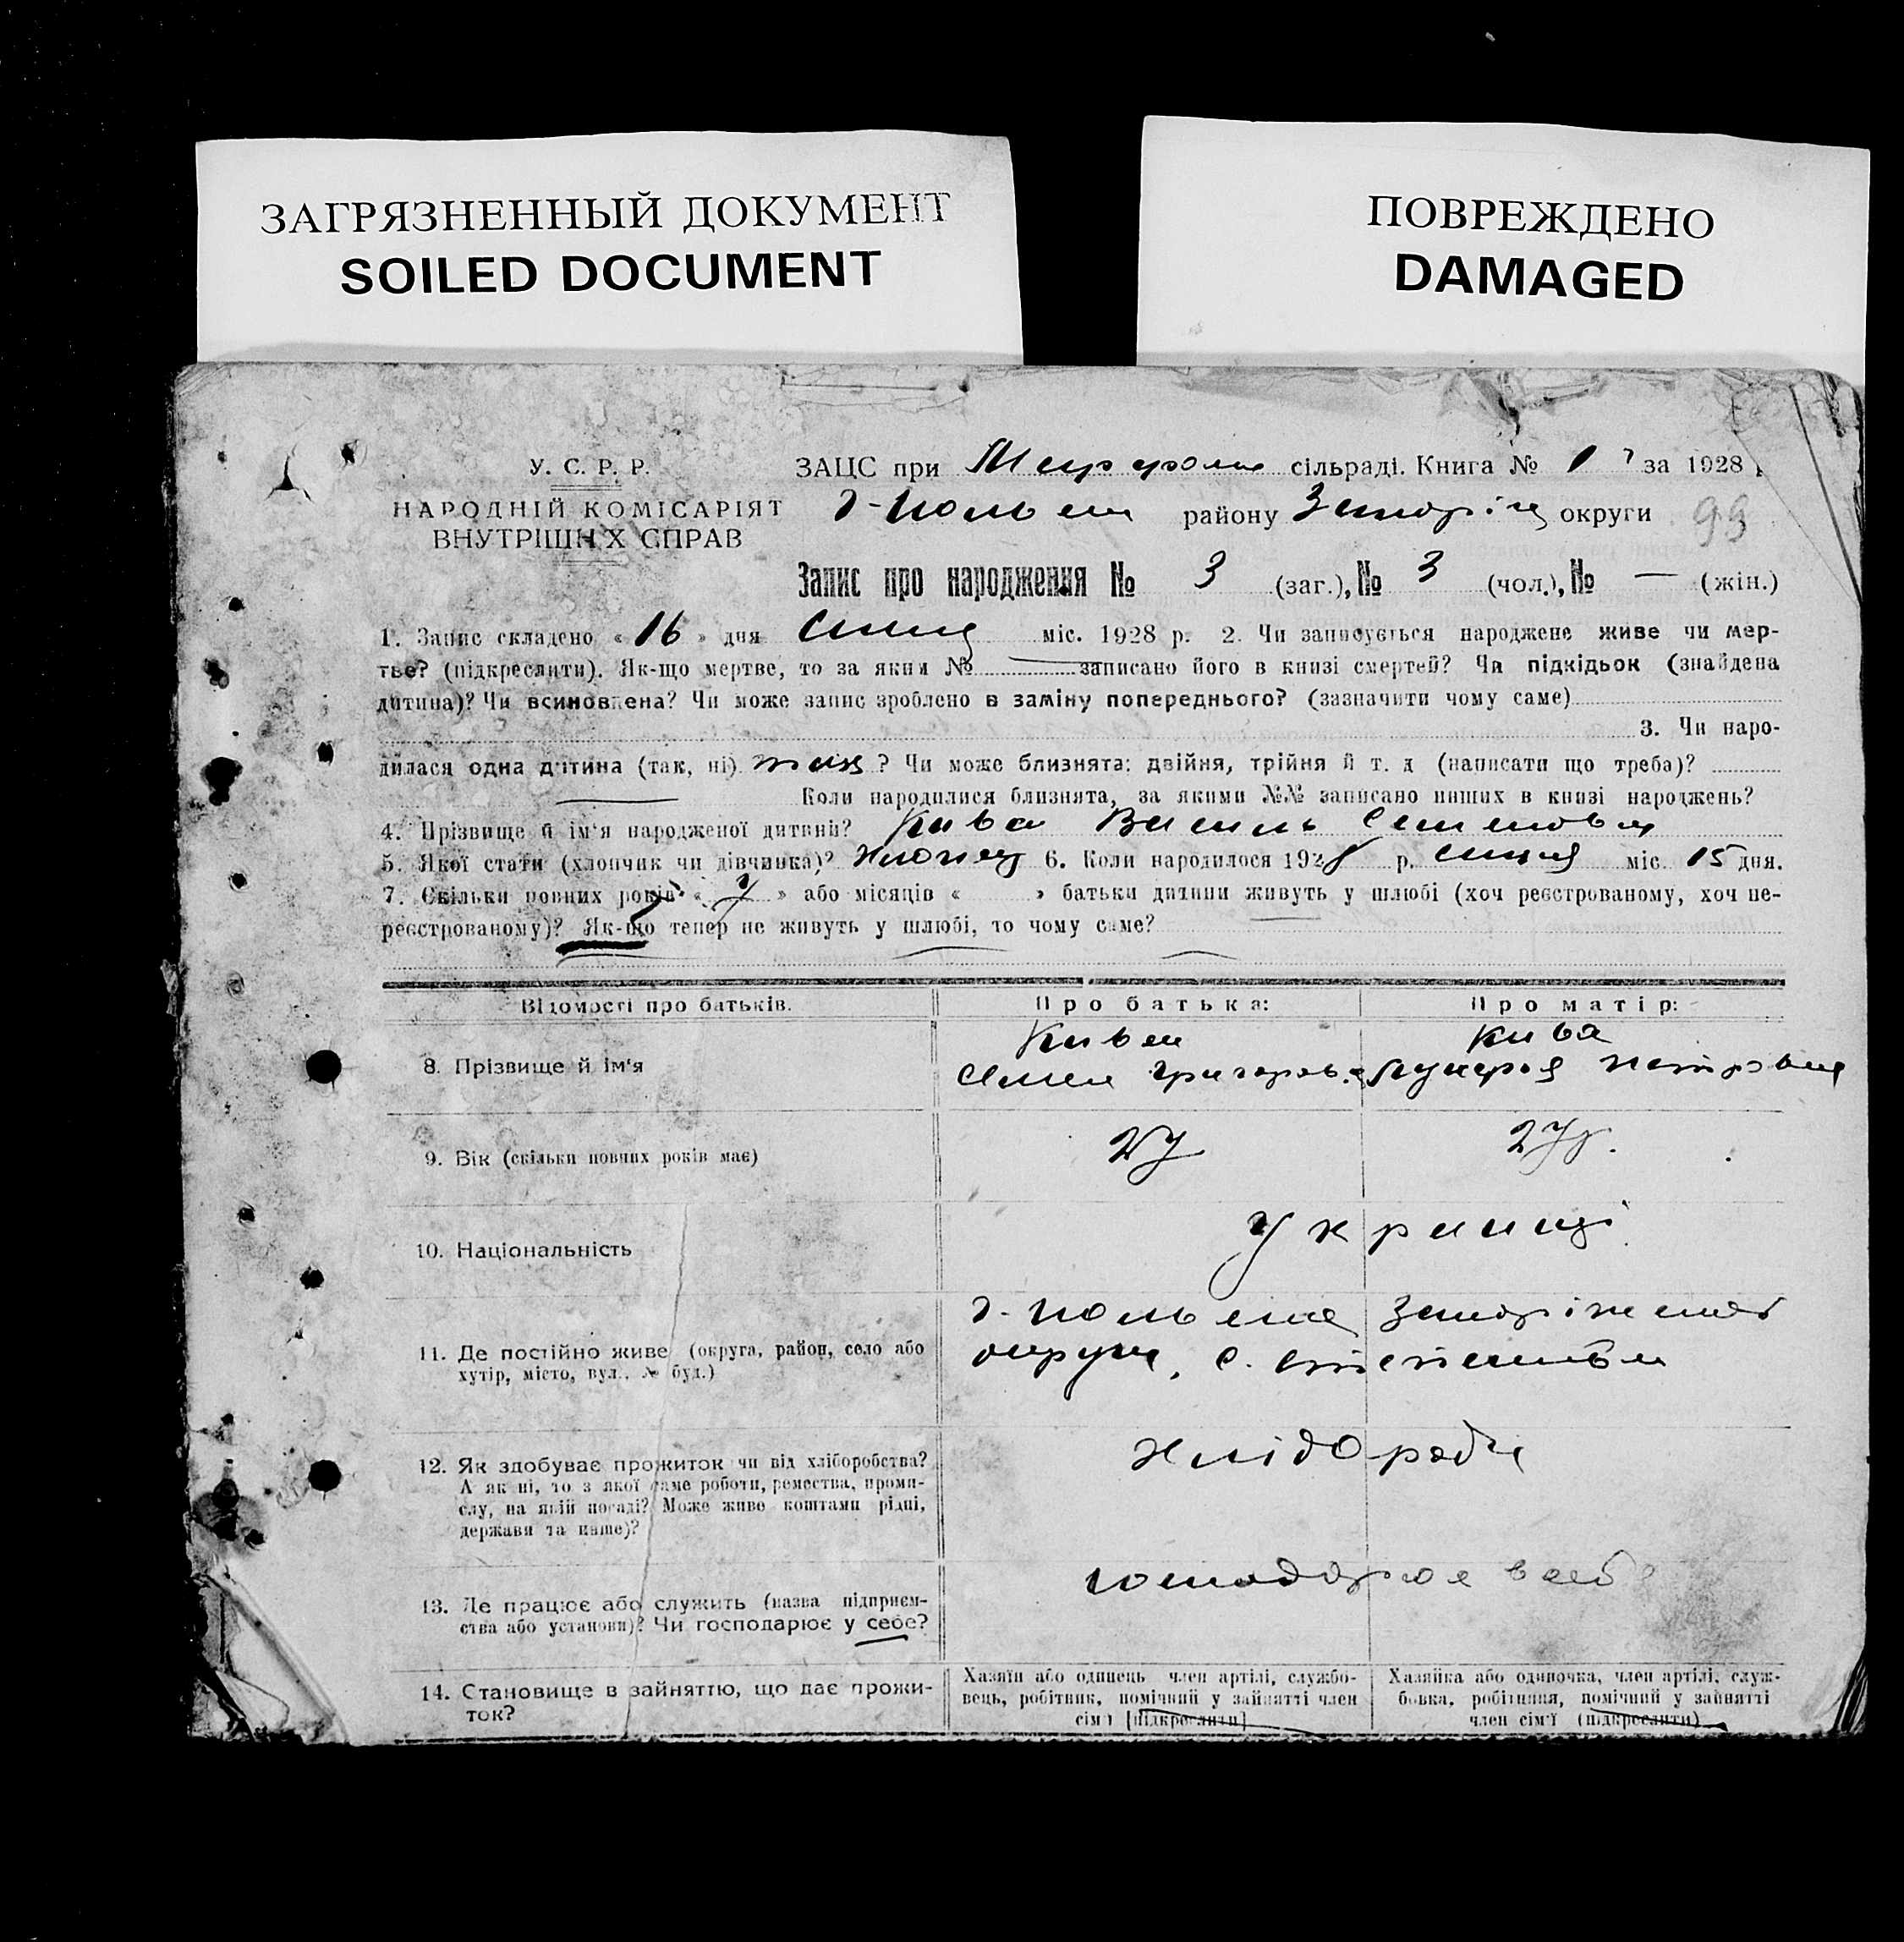 ЗАГРЯЗНЕННЫЙ ДОКУМЕНТ
SOILED DOCUMENT
ПОВРЕЖДЕНО
DAMAGED
У. С. Р. Р.
НАРОДНІЙ КОМІСАРІЯТ
ВНУТРІШНІХ СПРАВ
ЗАЦС при сільраді. Книга № 1 за 1928 р
району округи 99
Запис про народження № 3 (заг.), № 3 (чол.), № — (жін.)
1. Запис складено « 16 » дня міс. 1928 р. 2. Чи записується народжене живе чи мер-
тве? (підкреслити). Як-що мертве, то за яким № записано його в книзі смертей? Чи підкідьок (знайдена
дитина)? Чи всиновлена? Чи може запис зроблено в заміну попереднього? (зазначити чому саме)
3. Чи наро-
дилася одна дитина (так, ні) так ? Чи може близнята: двійня, трійня й т. д (написати що треба)?
Коли народилися близнята, за якими №№ записано инших в книзі народжень?
4. Прізвище й ім'я народженої дитини? Кива Василь Семенович
5. Якої стати (хлопчик чи дівчинка)? хлопец 6. Коли народилося 1928 р. міс. 15 дня.
7. Скільки повних років « 7 » або місяців « » батьки дитини живуть у шлюбі (хоч реєстрованому, хоч не-
реєстрованому)? Як-що тепер не живуть у шлюбі, то чому саме?
Відомості про батьків. Про батька: Про матір:
Кива Кива
8. Прізвище й ім'я
Семен Григоров. Лукерія Петровна
9. Вік (скільки повних років має) 27 27 р.
10. Національність Українці
11. Де постійно живе (округа, район, село або
хутір, місто, вул., № буд.)
округи, с.
12. Як здобуває прожиток чи від хліборобства?
А як ні, то з якої саме роботи, ремества, проми-
слу, на якій посаді? Може живе коштами рідні,
держави та инше)?
хлібороби
13. Де працює або служить (назва підприєм-
ства або установи)? Чи господарює у себе?
господарює в себе
14. Становище в зайняттю, що дає прожи-
ток?
Хазяїн або одинець член артілі, службо-
вець, робітник, помічний у зайнятті член
сім'ї [підкреслити]
Хазяйка або одиночка, член артілі, служ-
бовка, робітниця, помічний у зайнятті
член сім'ї (підкреслити)